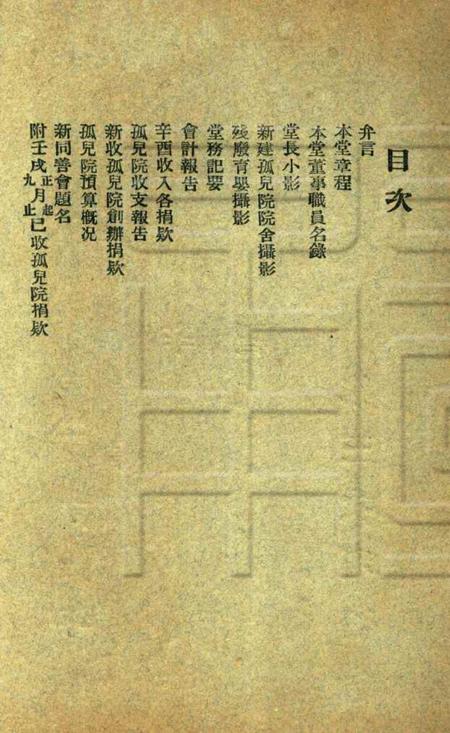 目次
弁言
本堂章程
本堂董事職員名錄
堂長小影
新建孤兒院院舍攝影
殘廢育嬰攝影
堂務記要
會計報告
辛酉收入各捐欵
孤兒院收支報告
新收孤兒院創辦捐欵
孤兒院預算概况
新同善會題名
附壬戌正九月起止已收孤兒院捐欵